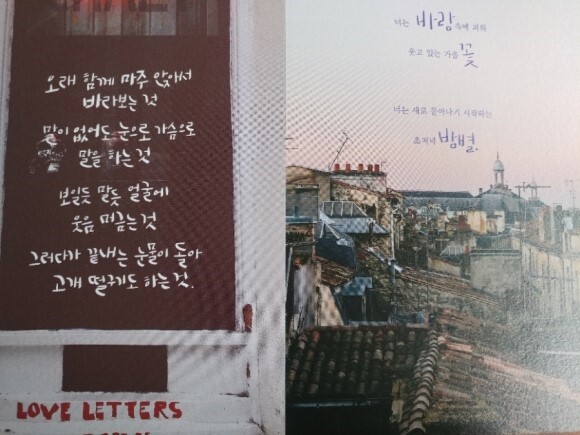 오래 함께 마주 앉아서
바라보는 것
말이 없어도 눈으로 가슴으로
말을 하는 것
보일듯 말듯 얼굴에
웃음 머금는 것
그러다가 끝내는 눈물이 돌아
고개 떨구기도 하는 것.
LOVE LETTERS
너는 바람 속에 피어
웃고 있는 가을 꽃
너는 새로 돋아나기 시작하는
초저녁 밤별.